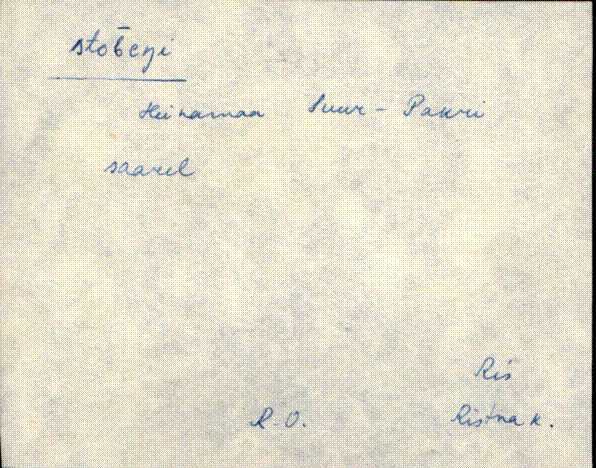 stōbeŋi
Heinamaa Suur-Pakri
saarel
Ris
R.O. Ristna k.